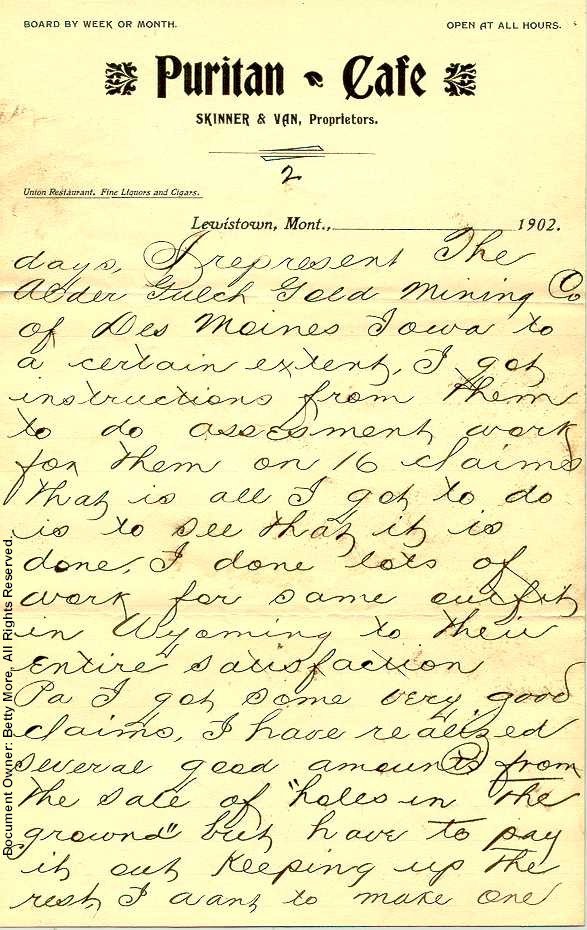 BOARD BY WEEK OR MONTH. OPEN AT ALL HOURS.
Puritan Cafe
SKINNER & VAN, Proprietors.
2
Union Restaurant. Fine Liquors and Cigars.
Lewistown, Mont., 1902.
days, I represent The
Alder Gulch Gold Mining Co
of Des Moines Iowa to
a certain extent, I got
instructions from them
to do assesment work
for them on 16 claims
that is all I got to do
is to see that it is
done, I done lots of
work for same outfit
in Wyoming to their
entire satisfaction
Pa I got some very good
claims, I have realized
several good amounts from
the sale of "holes in the
ground" but have to pay
it out keeping up the
rest I want to make one
Document Owner: Betty More, All Rights Reserved.